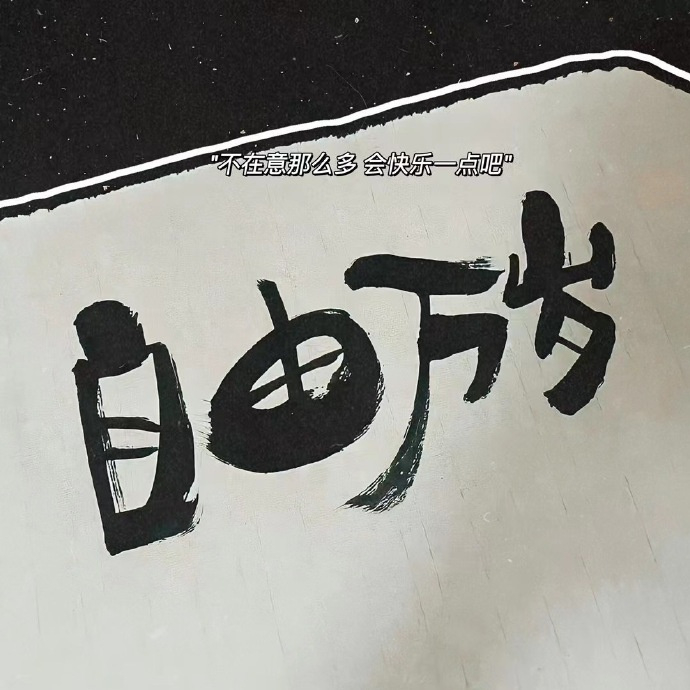 "不在意那么多 会快乐一点吧"
自由万岁